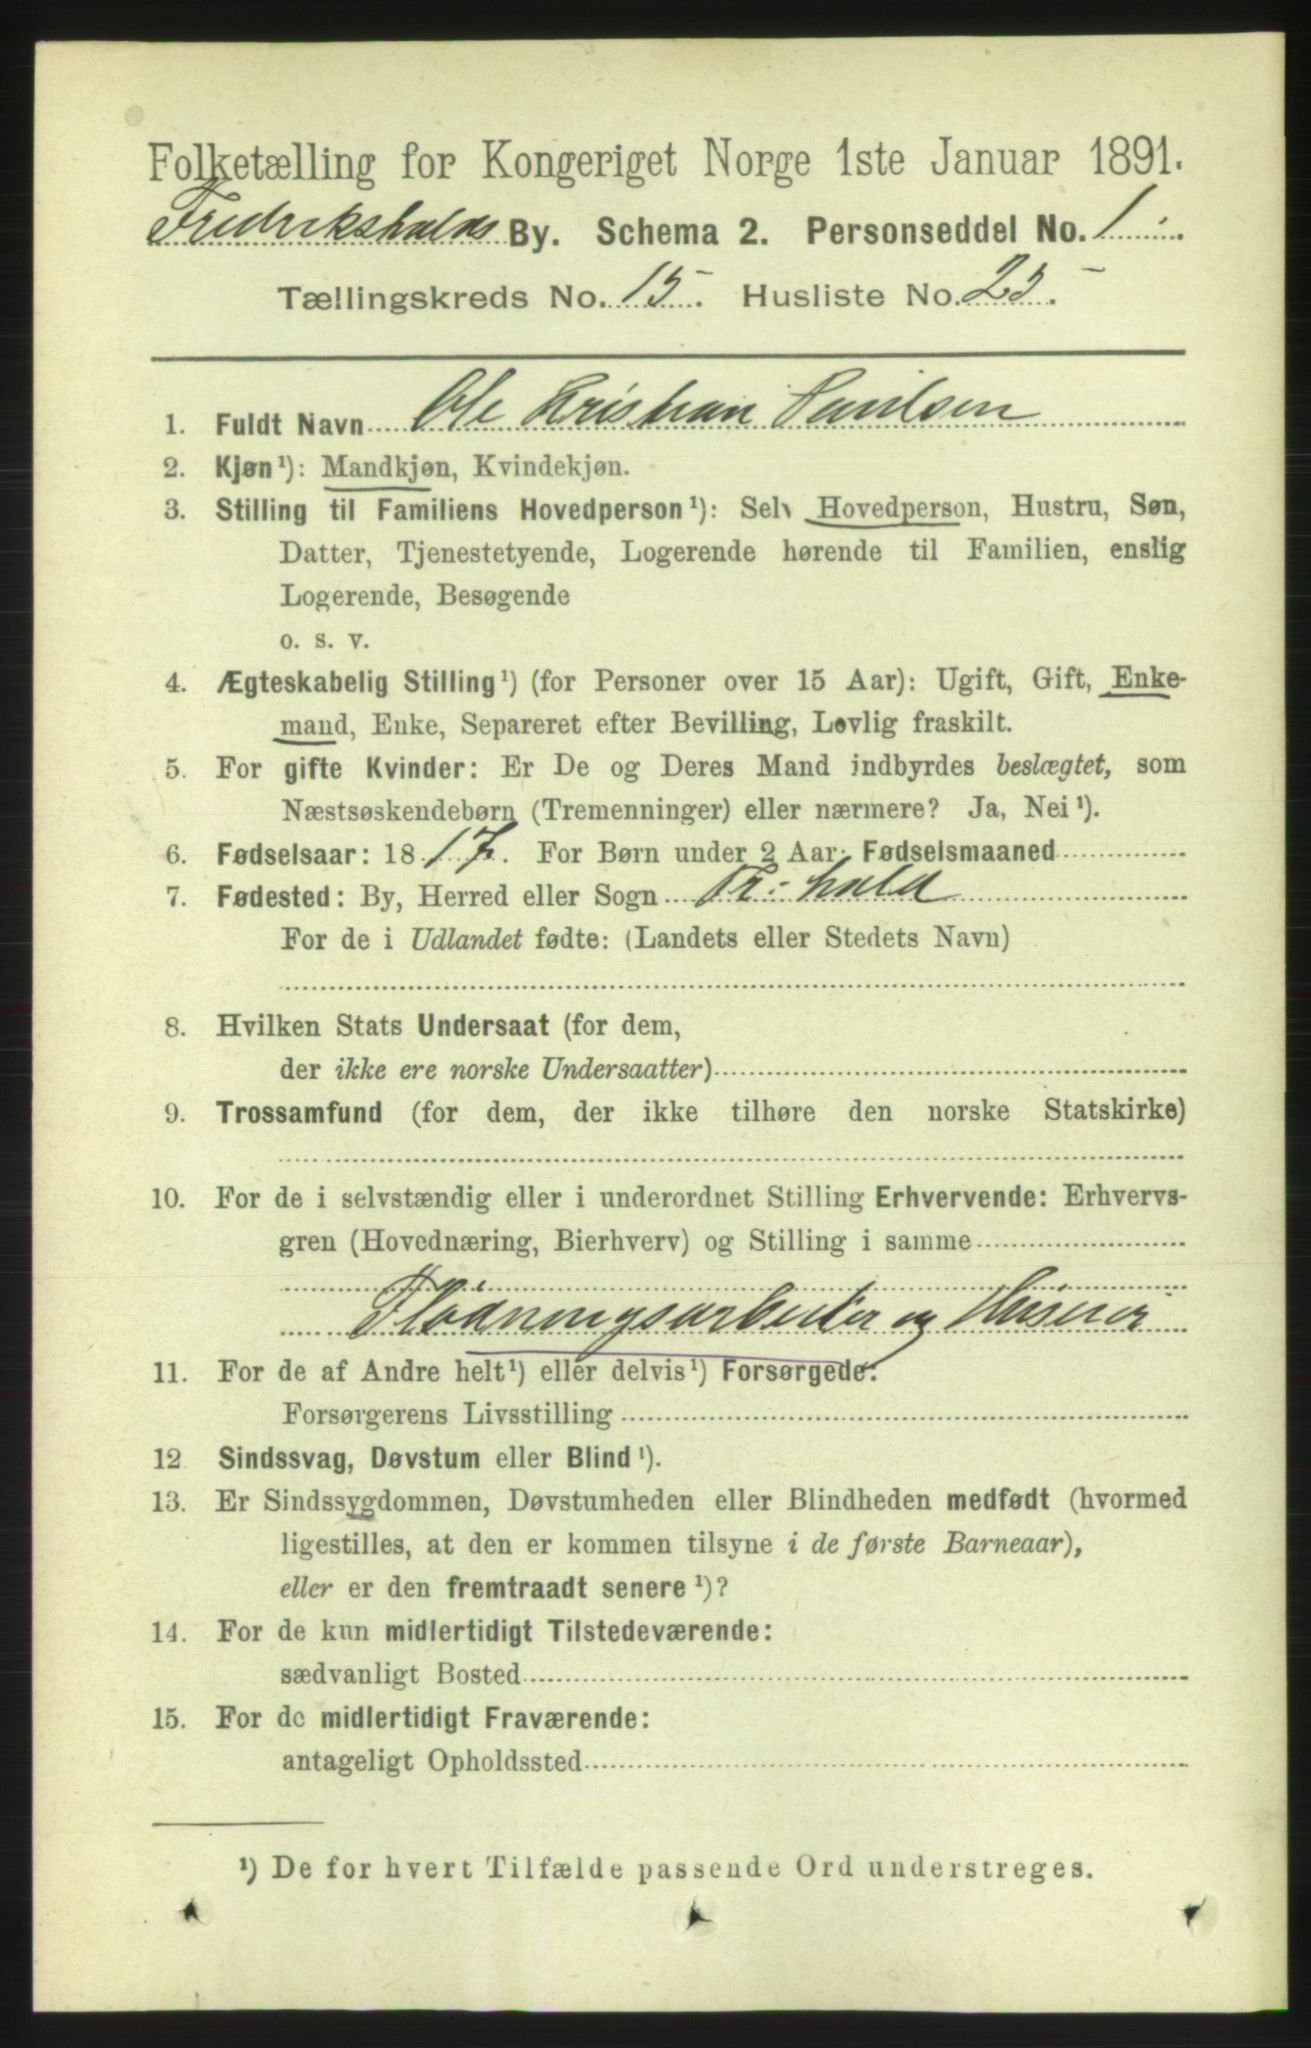 Folketælling for Kongeriget Norge 1ste Januar 1891.
Fredrikshalds By. Schema 2. Personseddel No. 1
Tællingskreds No. 15. Husliste No. 25.
1. Fuldt Navn Ole Kristian Paulsen
2. Kjøn¹): Mandkjøn, Kvindekjøn.
3. Stilling til Familiens Hovedperson¹): Selv Hovedperson, Hustru, Søn,
Datter, Tjenestetyende, Logerende hørende til Familien, enslig
Logerende, Besøgende
o. s. v.
4. Ægteskabelig Stilling¹) (for Personer over 15 Aar): Ugift, Gift, Enke-
mand, Enke, Separeret efter Bevilling, Lovlig fraskilt.
5. For gifte Kvinder: Er De og Deres Mand indbyrdes beslægtet, som
Næstsøskendebørn (Tremenninger) eller nærmere? Ja, Nei¹).
6. Fødselsaar: 1817. For Børn under 2 Aar: Fødselsmaaned
7. Fødested: By, Herred eller Sogn Fr:hald
For de i Udlandet fødte: (Landets eller Stedets Navn)
8. Hvilken Stats Undersaat (for dem,
der ikke ere norske Undersaatter)
9. Trossamfund (for dem, der ikke tilhøre den norske Statskirke)
10. For de i selvstændig eller i underordnet Stilling Erhvervende: Erhvervs-
gren (Hovednæring, Bierhverv) og Stilling i samme
Flødningsarbeider og Huseier
11. For de af Andre helt¹) eller delvis¹) Forsørgede:
Forsørgerens Livsstilling
12 Sindssvag, Døvstum eller Blind¹).
13. Er Sindssygdommen, Døvstumheden eller Blindheden medfødt (hvormed
ligestilles, at den er kommen tilsyne i de første Barneaar),
eller er den fremtraadt senere¹)?
14. For de kun midlertidigt Tilstedeværende:
sædvanligt Bosted
15. For de midlertidigt Fraværende:
antageligt Opholdssted
¹) De for hvert Tilfælde passende Ord understreges.